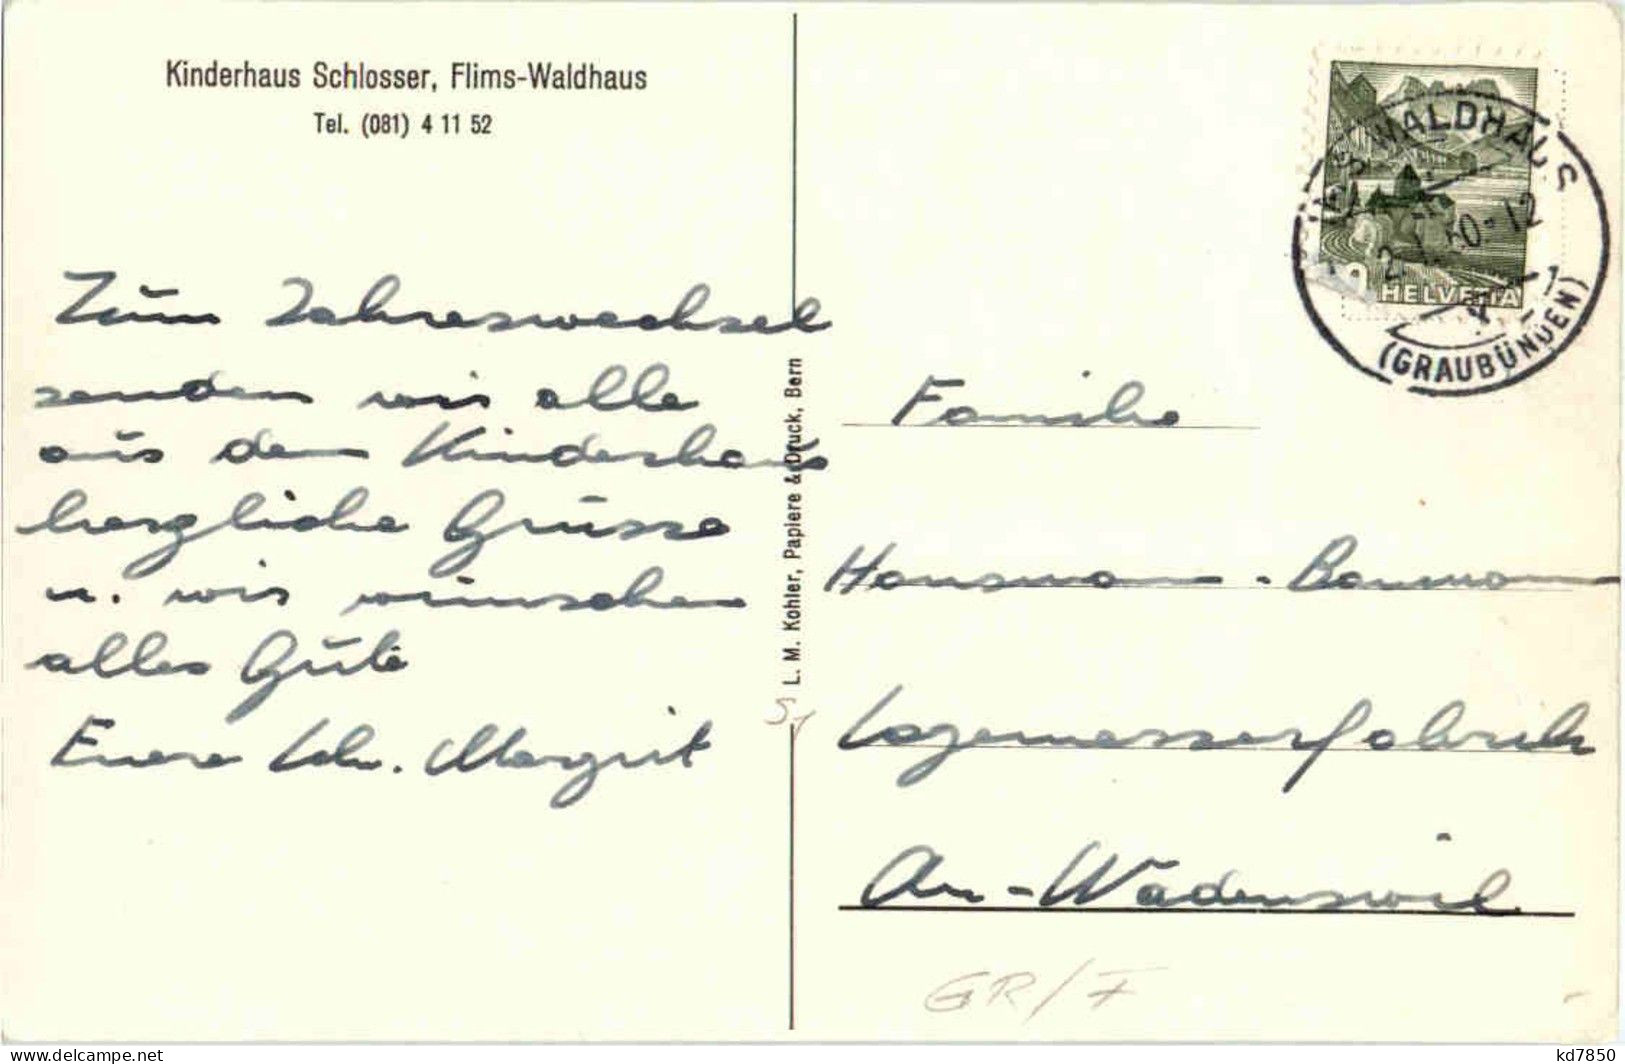 Kinderhaus Schlosser, Flims-Waldhaus
Tel. (081) 4 11 52
Zum Jahreswechsel
senden wir alle
aus dem Kinderhaus
herzliche Grüsse
u. wir wünschen
alles Gute
Euere Schw. Margrit
L. M. Kohler, Papiere & Druck, Bern
WALDHAUS
2. I. 50-12
(GRAUBÜNDEN)
HELVETIA
Familie
Hansmann - Baumann
Lagemesserfabrik
Au - Wädenswil
GR/F
kd7850